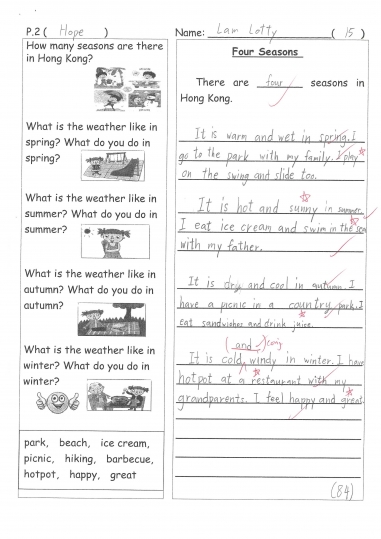 P.2 ( Hope )
Name: Lam Lotty ( 15 )
How many seasons are there
in Hong Kong?
What is the weather like in
spring? What do you do in
spring?
What is the weather like in
summer? What do you do in
summer?
What is the weather like in
autumn? What do you do in
autumn?
What is the weather like in
winter? What do you do in
winter?
park, beach, ice cream,
picnic, hiking, barbecue,
hotpot, happy, great
Four Seasons
There are four seasons in
Hong Kong.
It is warm and wet in spring. I
go to the park with my family. I play
on the swing and slide too.
It is hot and sunny in summer.
I eat ice cream and swim in the sea
with my father.
It is dry and cool in autumn. I
have a picnic in a country park. I
eat sandwiches and drink juice.
(and)
It is cold, windy in winter. I have
hotpot at a restaurant with my
grandparents. I feel happy and great.
(84)